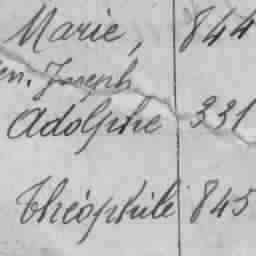 Marie, 844
en. Joseph
Adolphe 331
Théophile 845